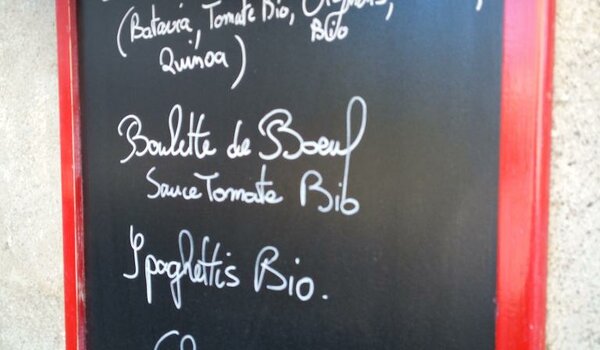 (Batavia, Tomate Bio, Oignons,
Bio
Quinoa)
Boulette de Boeuf
Sauce Tomate Bio
Spaghettis Bio.